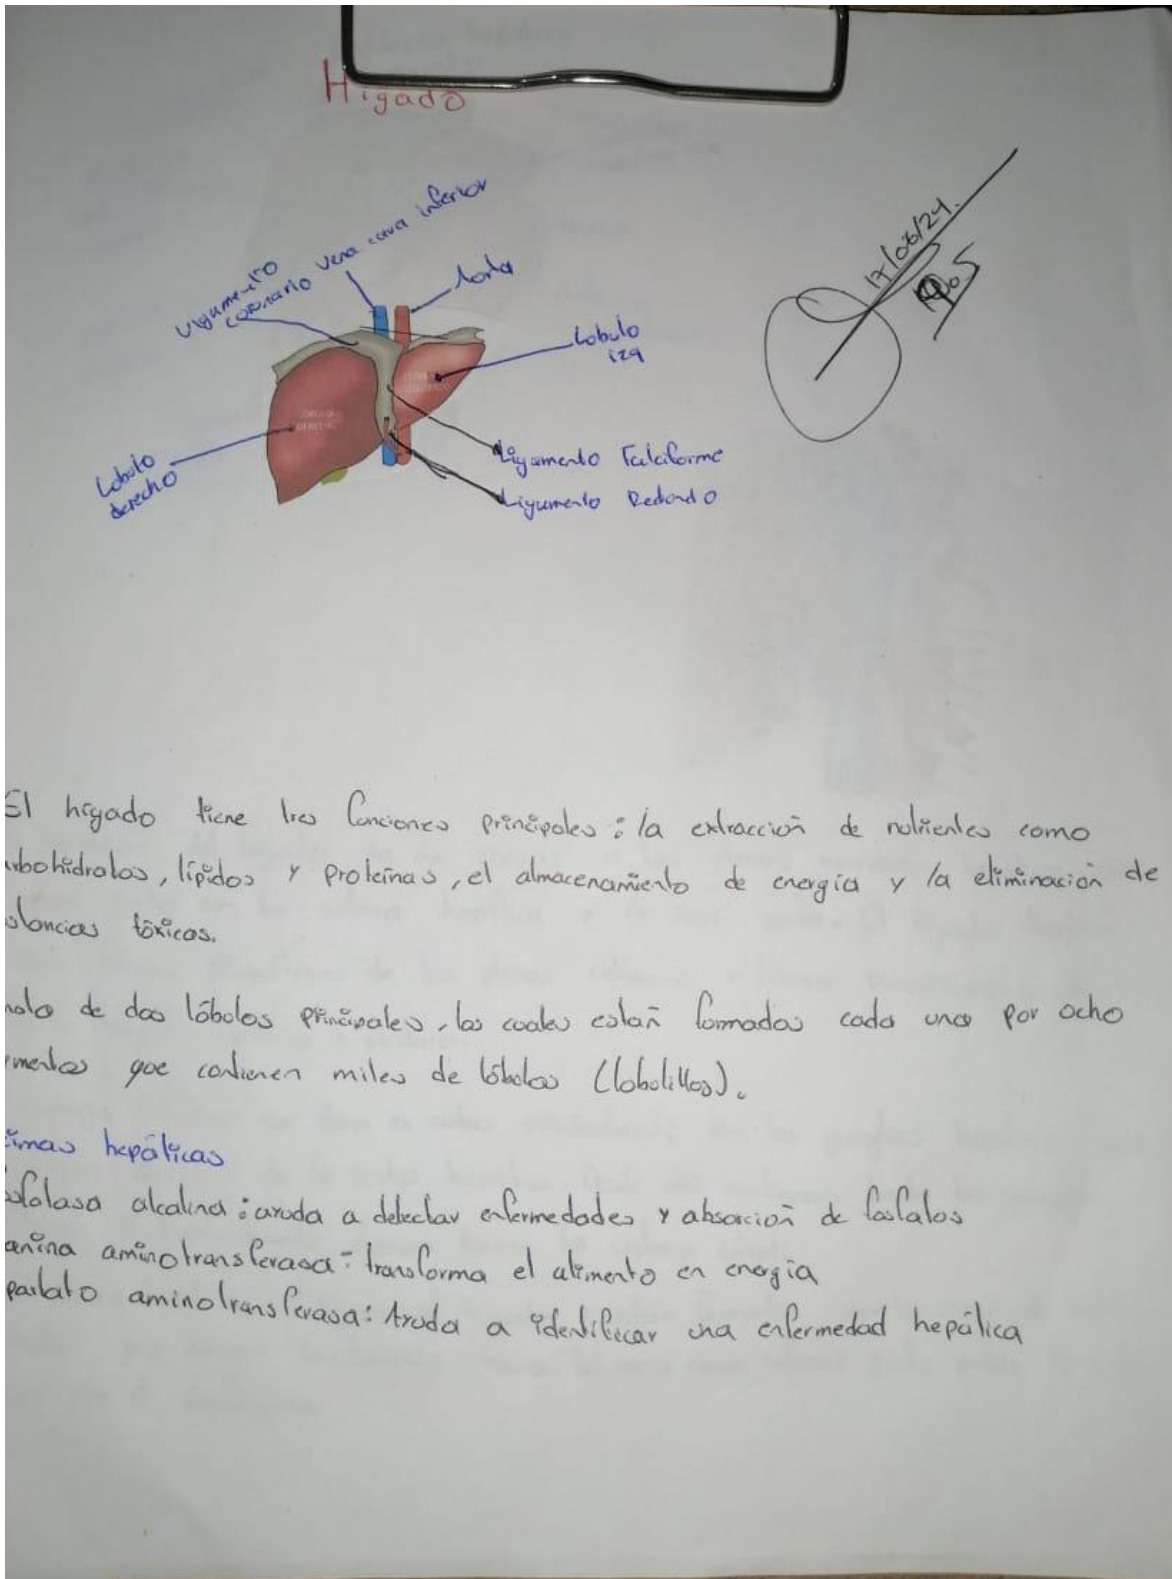 Hígado
Vena cava inferior
Ligamento
coronario
Aorta
Lobulo
izq
Lobulo
derecho
Ligamento Falciforme
Ligamento Redondo
17/08/24.
El hígado tiene tres funciones principales: la extracción de nutrientes como
arbohidratos, lípidos y proteínas, el almacenamiento de energía y la eliminación de
stancias tóxicas.
de dos lóbulos principales, los cuales están formados cada uno por ocho
mentos que contienen miles de lóbulos (lobulillos).
imas hepáticas
sfatasa alcalina: ayuda a detectar enfermedades y absorción de fosfatos
anina aminotransferasa: transforma el alimento en energía
partato aminotransferasa: Ayuda a identificar una enfermedad hepática